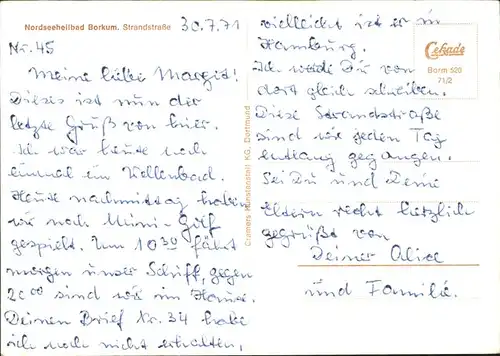 Nordseeheilbad Borkum. Strandstraße
30.7.71
Nr. 45
Meine liebe Margit!
Dieses ist nun der
letzte Gruß von hier.
Ich war heute noch
einmal im Wellenbad.
Heute nachmittag haben
wir noch Mini-Golf
gespielt. Um 10 30 fährt
morgen unser Schiff, gegen
20 00 sind wir im Hause.
Deinen Brief Nr. 34 habe
ich noch nicht erhalten,
Cramers Kunstanstalt KG, Dortmund
vielleicht ist er in
Hamburg.
Ich werde Dir von
dort gleich schreiben.
Diese Strandstraße
sind wir jeden Tag
entlang gegangen.
Sei Du und Deine
Eltern recht herzlich
gegrüßt von
Deiner Alice
und Familie.
Cekade
Borm 520
71/2